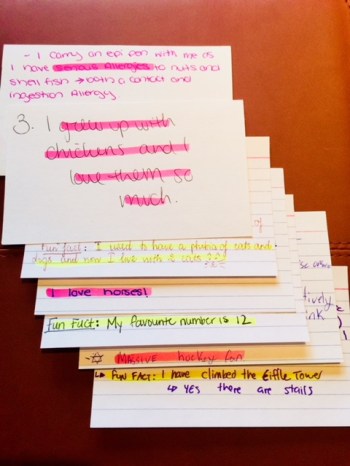 - I carry an epi pen with me as
I have serious allergies to nuts and
shell fish → both a contact and
ingestion allergy
3. I grew up with
chickens and I
love them so
much.
of
Fun fact: I used to have a plethora of cats and
dogs and now I live with 2 cats
I love horses!
tively
ink
Fun Fact: My favourite number is 12
MASSIVE hockey fan
↳ FUN FACT: I have climbed the Eiffle Tower
↳ YES there are stairs